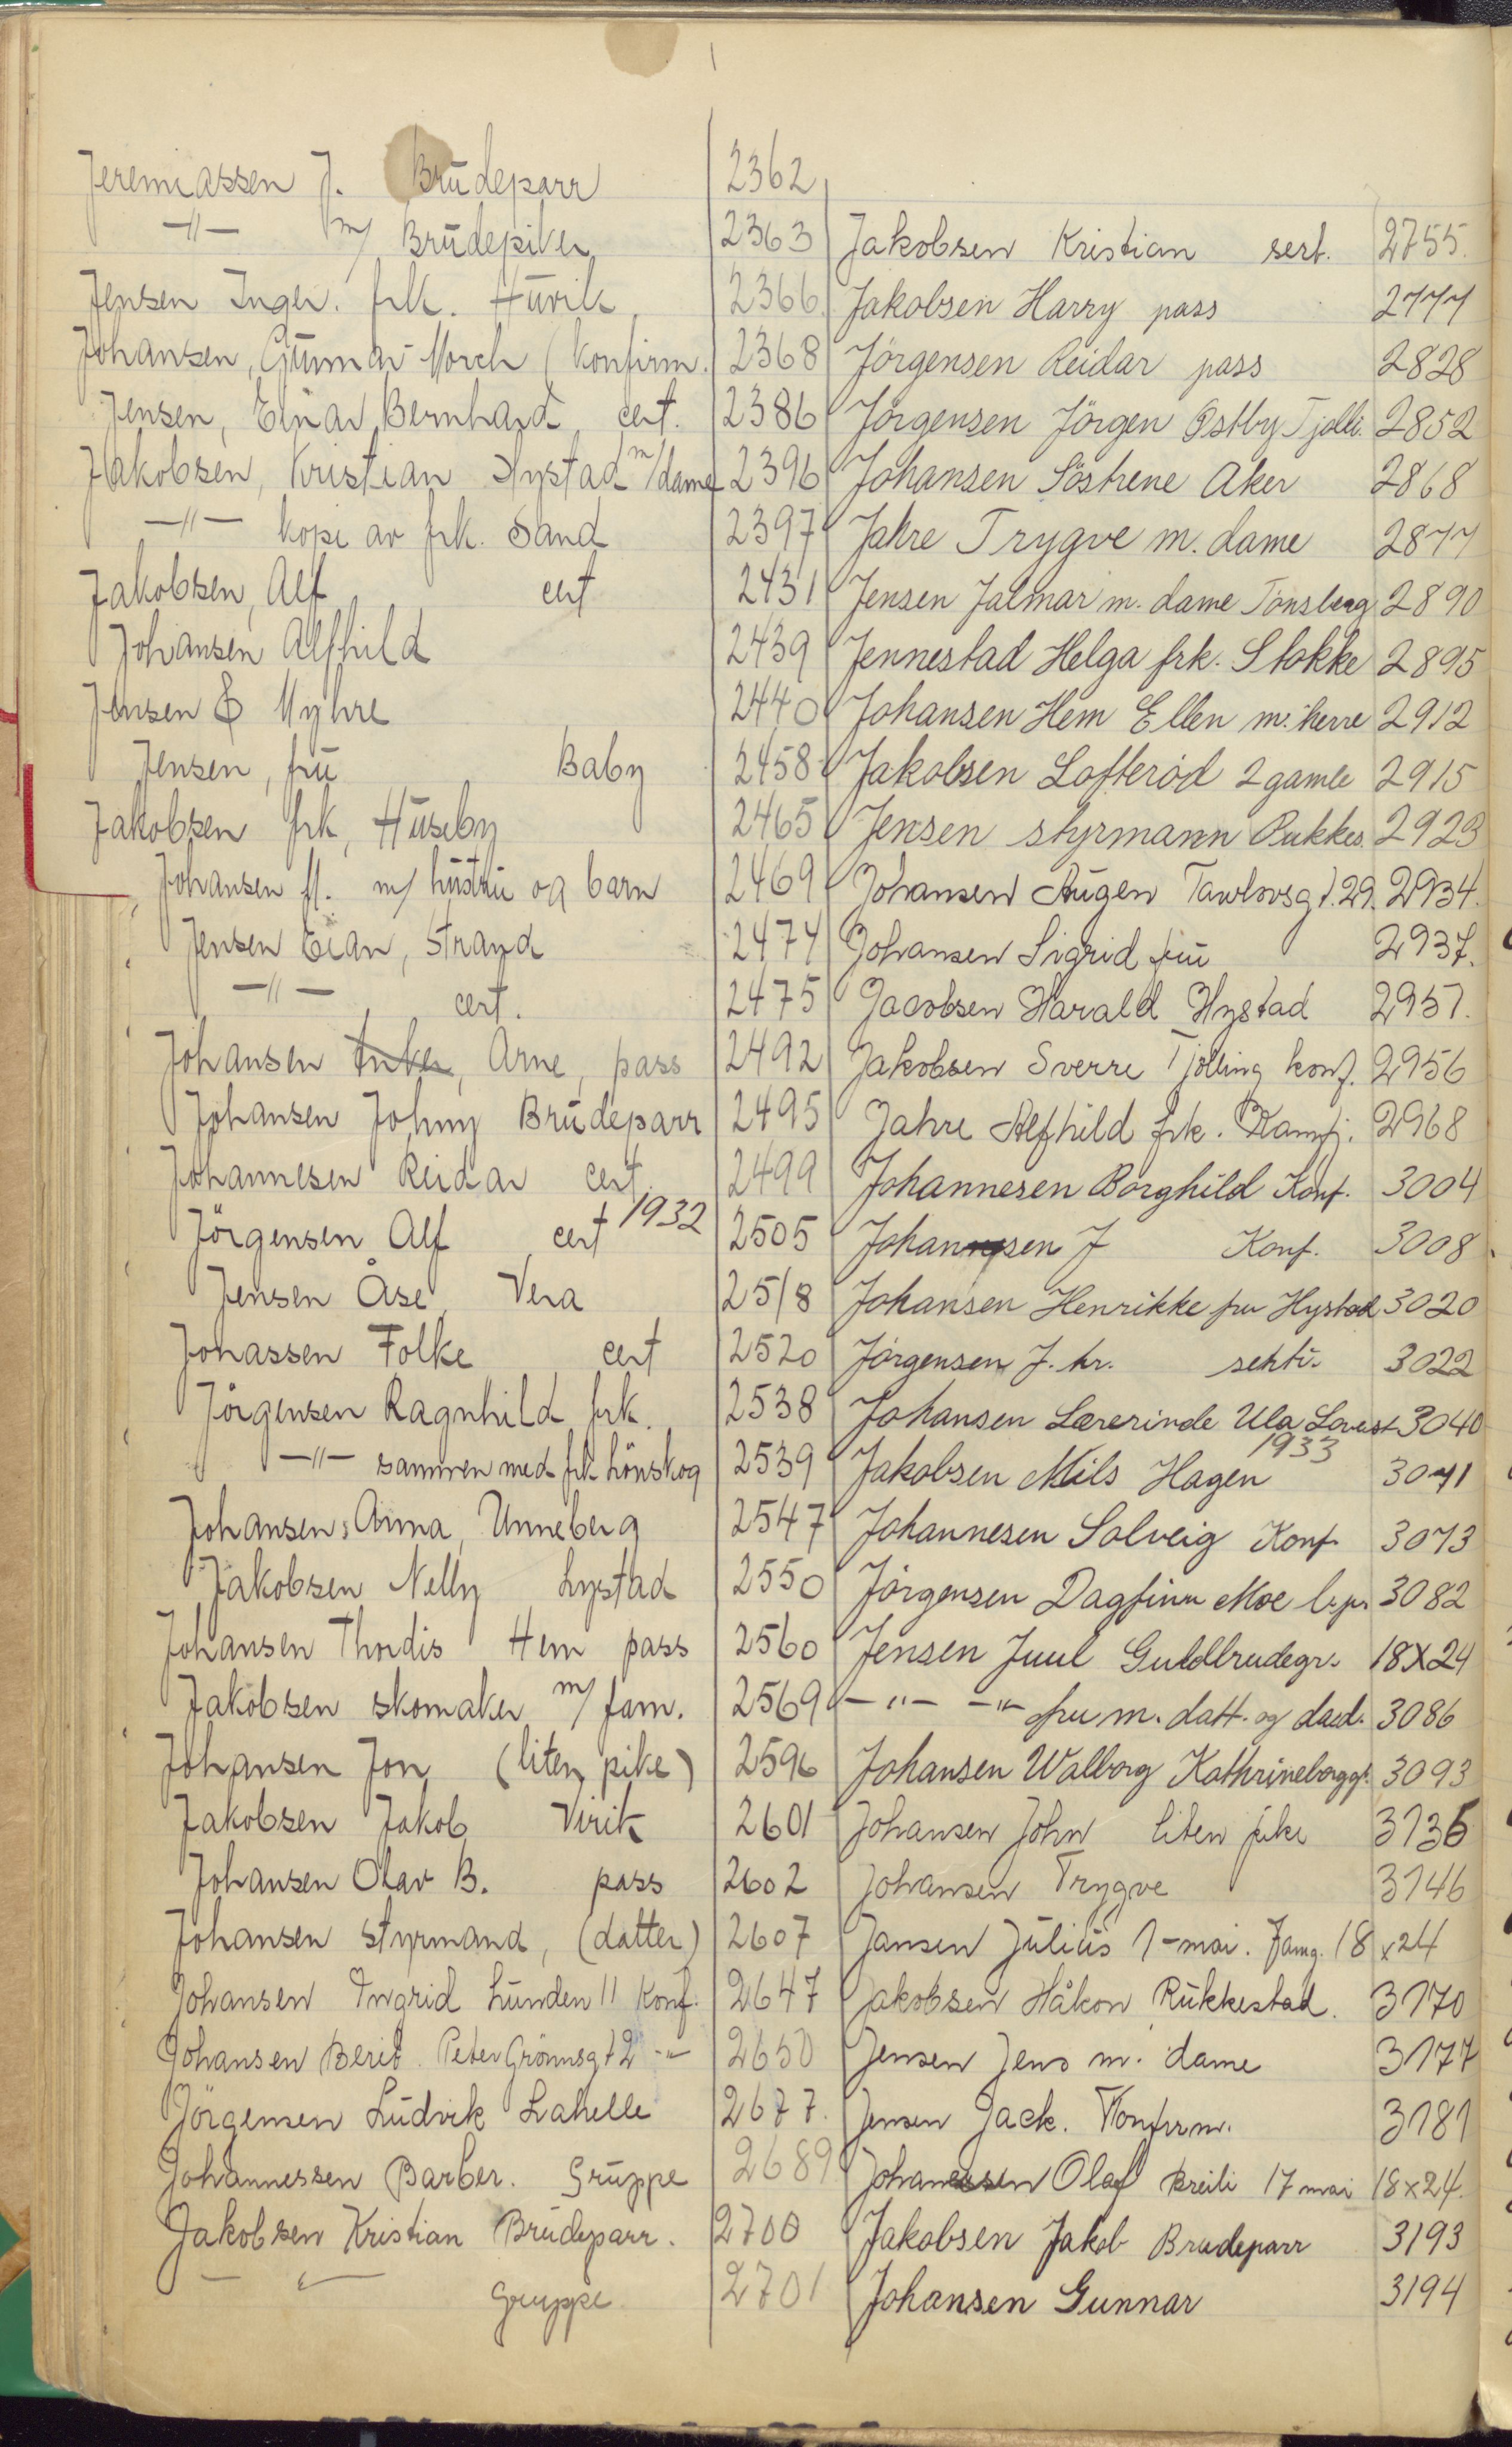 Jeremiassen J. Brudeparr 2362
-"- m/ Brudepiker 2363
Jensen Inger. frk. Huvik 2366
Johansen, Gunnar Morch (konfirm. 2368
Jensen, Einar Bernhard cert. 2386
Jakobsen, Kristian Hystad m/dame 2396
-"- kopi av frk. Sand 2397
Jakobsen, Alf cert 2431
Johansen Alfhild 2439
Jensen & Myhre 2440
Jensen, fru Baby 2458
Jakobsen frk, Huseby 2465
Johansen fl. m/ hustru og barn 2469
Jensen Eian, Strand 2474
-"- cert. 2475
Johansen Anker, Arne, pass 2492
Johansen Johny Brudeparr 2495
Johannesen Reidar cert. 2499
Jörgensen Alf cert 1932 2505
Jensen Åse, Vera 2518
Jonassen Folke cert 2520
Jörgensen Ragnhild frk. 2538
-"- sammen med frk Lönskog 2539
Johansen, Anna, Unneberg 2547
Jakobsen Nelly Lystad 2550
Johansen Thordis Hem pass 2560
Jakobsen skomaker m/ fam. 2569
Johansen Jon (liten pike) 2596
Jakobsen Jakob Virik 2601
Johansen Olav B. pass 2602
Johansen styrmand, (datter) 2607
Johansen Ingrid Lunden 11 Konf. 2647
Johansen Berit Peter Grönnsgt 2 -"- 2650
Jörgensen Ludvik Lahelle 2677.
Johannessen Barber. Gruppe 2689
Jakobsen Kristian Brudeparr. 2700
- " Gruppe 2701
Jakobsen Kristian sert. 2755.
Jakobsen Harry pass 2777
Jörgensen Reidar pass 2828
Jörgensen Jörgen Östby Tjölli. 2852
Johansen Söstrene Aker 2868
Jahre Trygve m. dame 2877
Jensen Jalmar m. dame Tönsberg 2890
Jennestad Helga frk. Stokke 2895
Johansen Hem Ellen m. herre 2912
Jakobsen Lofteröd 2 gamle 2915
Jensen styrmann Pukkes. 2923
Johansen Augen Tawlovsgt. 29. 2934.
Johansen Sigrid fru 2937.
Jacobsen Harald Hystad 2951.
Jakobsen Sverre Tjölling konf. 2956
Jahre Alfhild frk. Kamfj. 2968
Johannesen Borghild Konf. 3004
Johannsen J Konf. 3008
Johansen Henrikke fru Hystad 3020
Jörgensen J. hr. 3022
Johansen Lærerinde Ula 3040
1933
Jakobsen Nils Hagen 3071
Johannesen Solveig Konf. 3073
Jörgensen Dagfinn Moe 3082
Jensen Juul Guldbrudegr. 18X24
-"- -"- fru m. datt. og 3086
Johansen Walborg Kathrineborggt. 3093
Johansen John liten pike 3136
Johansen Trygve 3146
Jansen Julius 1-mai. 18x24
Jakobsen Håkon Rukkestad. 3170
Jensen Jens m. dame 3177
Jensen Jack. Konfirm. 3181
Johanessen Olaf Breili 17 mai 18x24.
Jakobsen Jakob Brudeparr 3193
Johansen Gunnar 3194